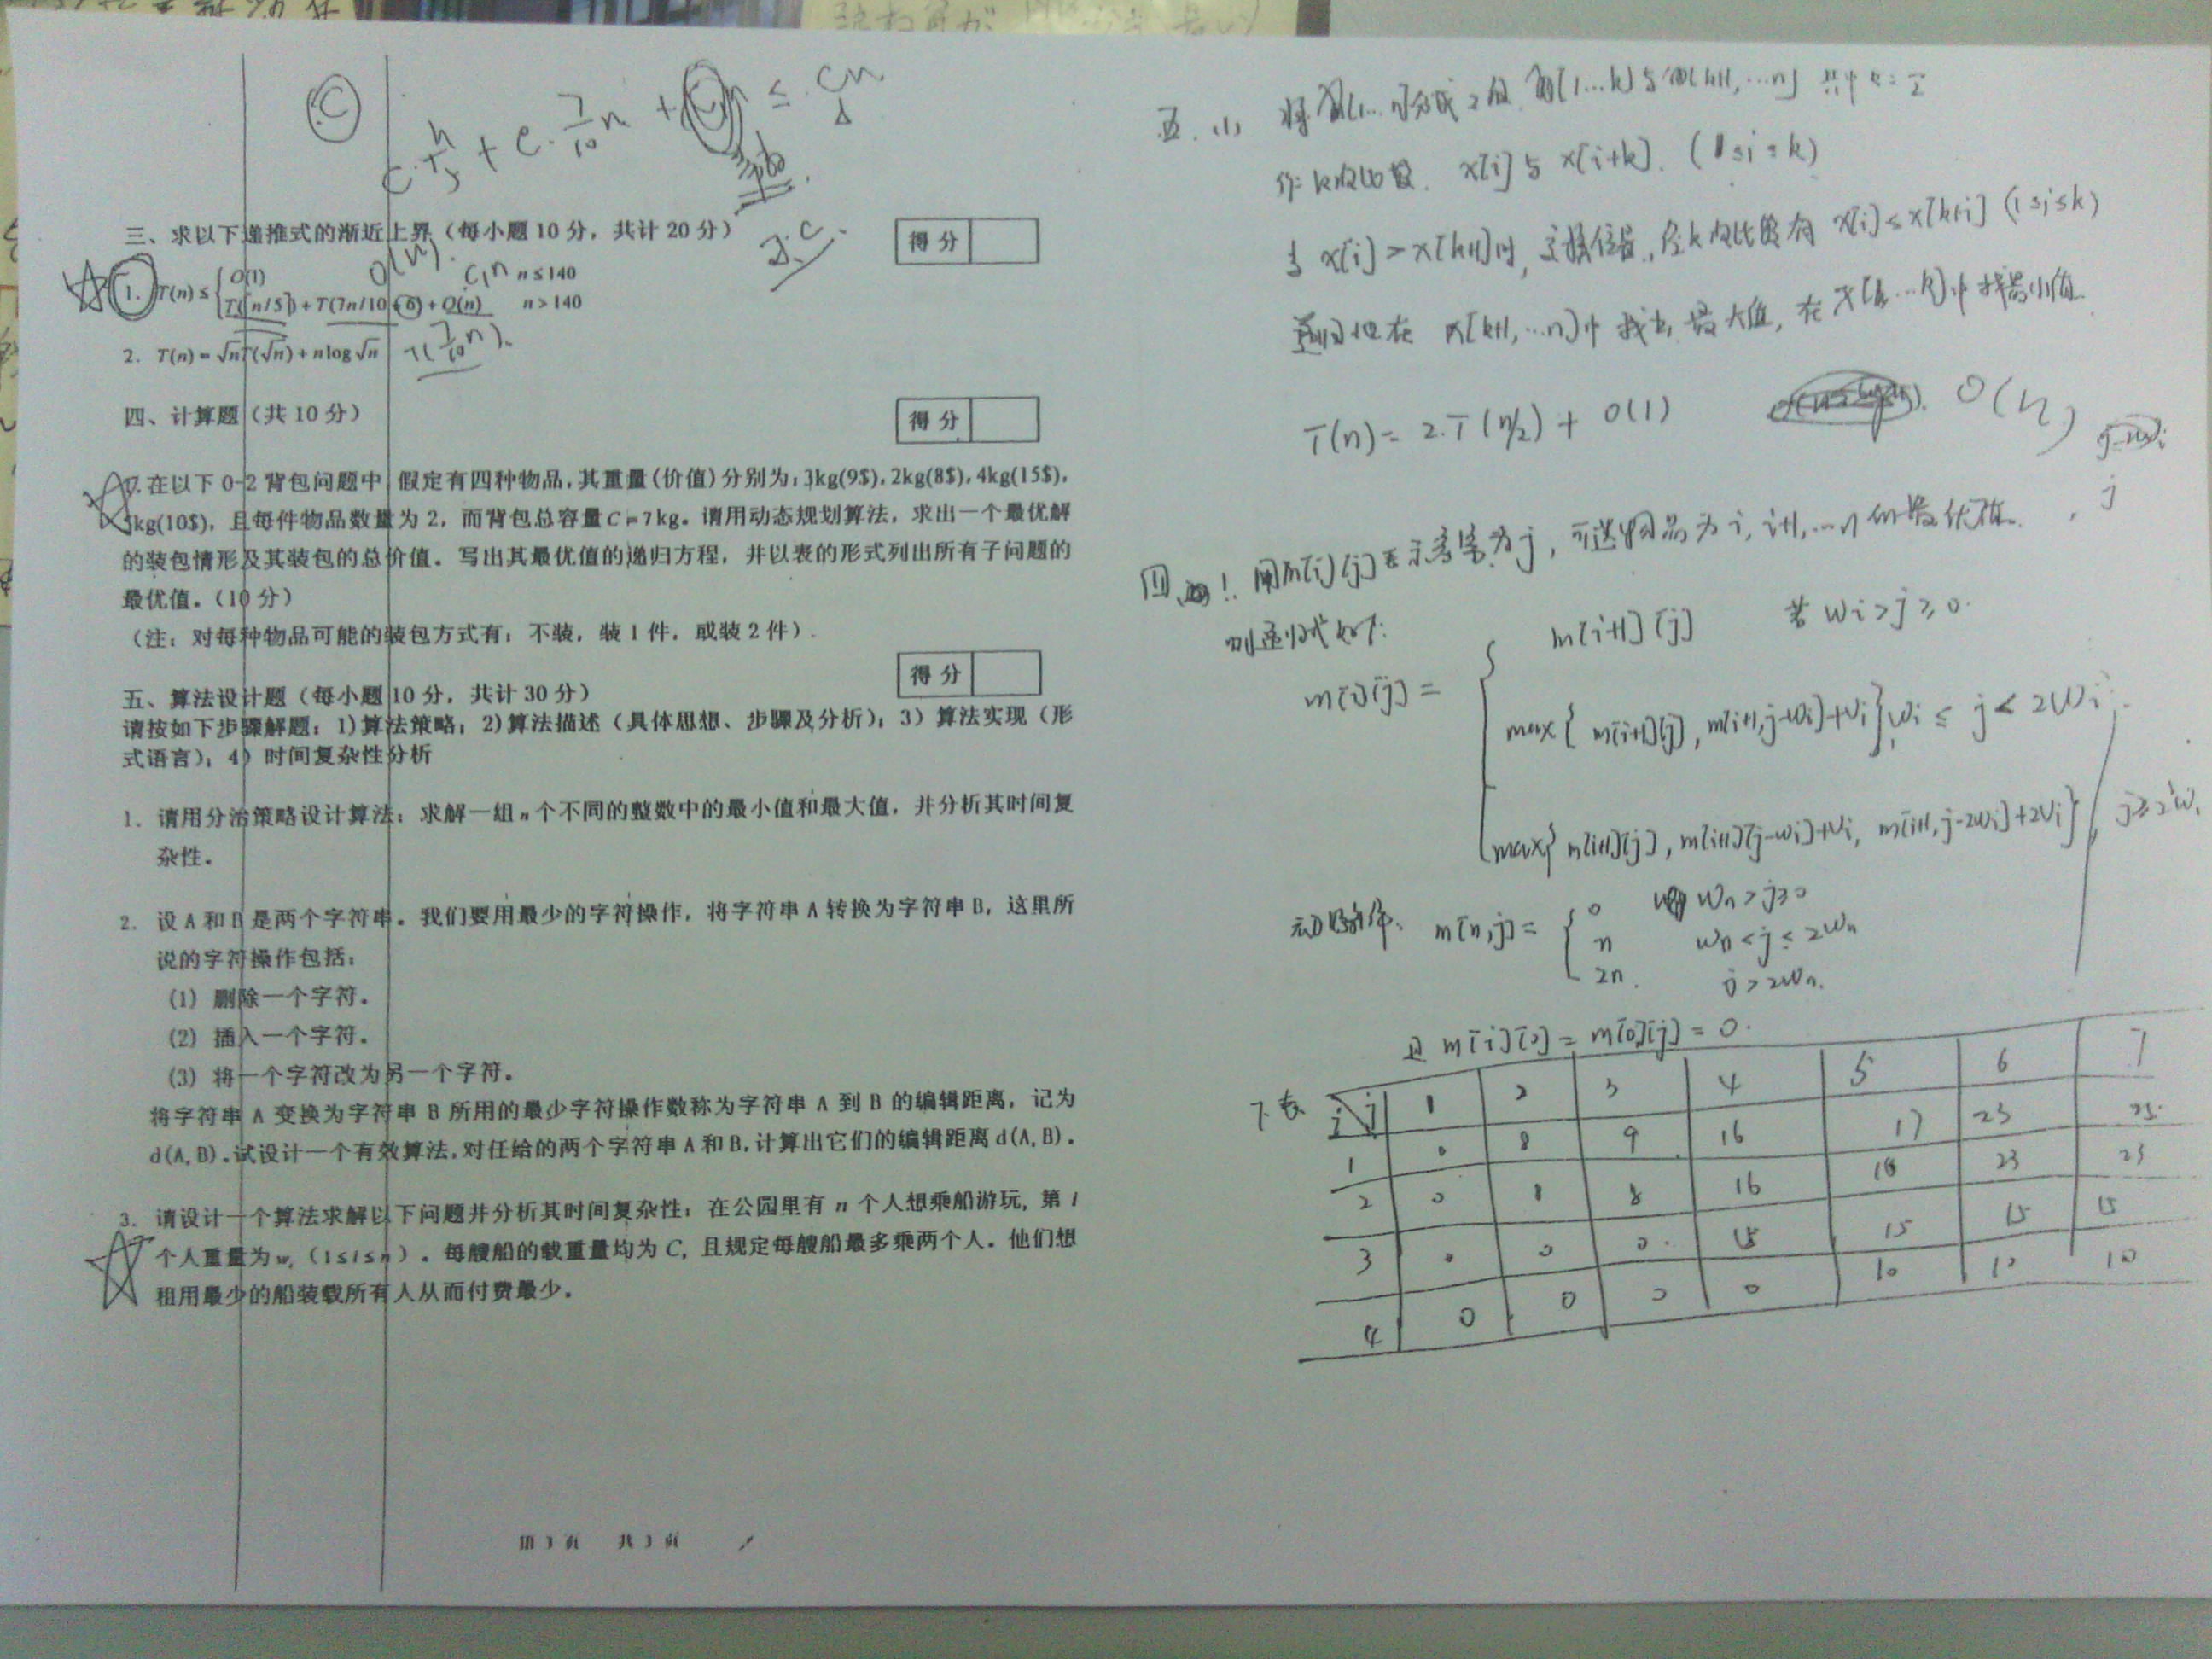 C
C·n/5 + C·7/10 n + ≤ Cn
三、求以下递推式的渐近上界（每小题10分，共计20分）
得分
O(n).
C₁n
1. T(n) ≤ { O(1) n≤140
T(⌈n/5⌉)+T(7n/10+6)+O(n) n>140
2. T(n)=√nT(√n)+nlog√n
T(7/10 n).
四、计算题（共10分）
得分
在以下0-2背包问题中,假定有四种物品,其重量(价值)分别为:3kg(9$),2kg(8$),4kg(15$),
5kg(10$)，且每件物品数量为2，而背包总容量C=7kg。请用动态规划算法，求出一个最优解
的装包情形及其装包的总价值。写出其最优值的递归方程，并以表的形式列出所有子问题的
最优值。（10分）
（注：对每种物品可能的装包方式有：不装，装1件，或装2件）.
得分
五、算法设计题（每小题10分，共计30分）
请按如下步骤解题：1)算法策略；2)算法描述（具体思想、步骤及分析）；3）算法实现（形
式语言）；4）时间复杂性分析
1. 请用分治策略设计算法：求解一组n个不同的整数中的最小值和最大值，并分析其时间复
杂性。
2. 设A和B是两个字符串。我们要用最少的字符操作，将字符串A转换为字符串B，这里所
说的字符操作包括：
(1) 删除一个字符。
(2) 插入一个字符。
(3) 将一个字符改为另一个字符。
将字符串A变换为字符串B所用的最少字符操作数称为字符串A到B的编辑距离，记为
d(A,B).试设计一个有效算法,对任给的两个字符串A和B,计算出它们的编辑距离d(A,B).
3. 请设计一个算法求解以下问题并分析其时间复杂性：在公园里有n个人想乘船游玩，第i
个人重量为wᵢ（1≤i≤n）。每艘船的载重量均为C，且规定每艘船最多乘两个人。他们想
租用最少的船装载所有人从而付费最少。
第3页 共3页
五.(1) 将 [1...n]分成2段 [1...k]与 [k+1,...n] 其中k=
作k次比较. x[i]与x[i+k]. (1≤i≤k)
当x[i]>x[k+i]时,交换位置,经k次比较有x[i]<x[k+i] (1≤i≤k)
递归地在x[k+1,...n]中找出最大值,在x[1...k]中找最小值.
T(n)= 2.T(n/2)+ O(1) O(n)
j
四.1. 用m[i][j]表示容量为j,可选物品为i,i+1,...n的最优值.
则递归式如下:
m[i][j]= { m[i+1][j] 若wi>j≥0.
max{m[i+1][j],m[i+1,j-wi]+vi}, wi≤j<2wi
max{m[i+1][j],m[i+1][j-wi]+vi, m[i+1,j-2wi]+2vi}, j≥2wi
m[n,j]= { 0 wn>j≥0
n wn<j≤2wn
2n. j>2wn.
且m[i][0]=m[0][j]=0.
下表
i j 1 2 3 4 5 6 7
1 0 8 9 16 17 23 25
2 0 8 8 16 16 23 23
3 0 0 0 15 15 15 15
4 0 0 0 0 10 10 10